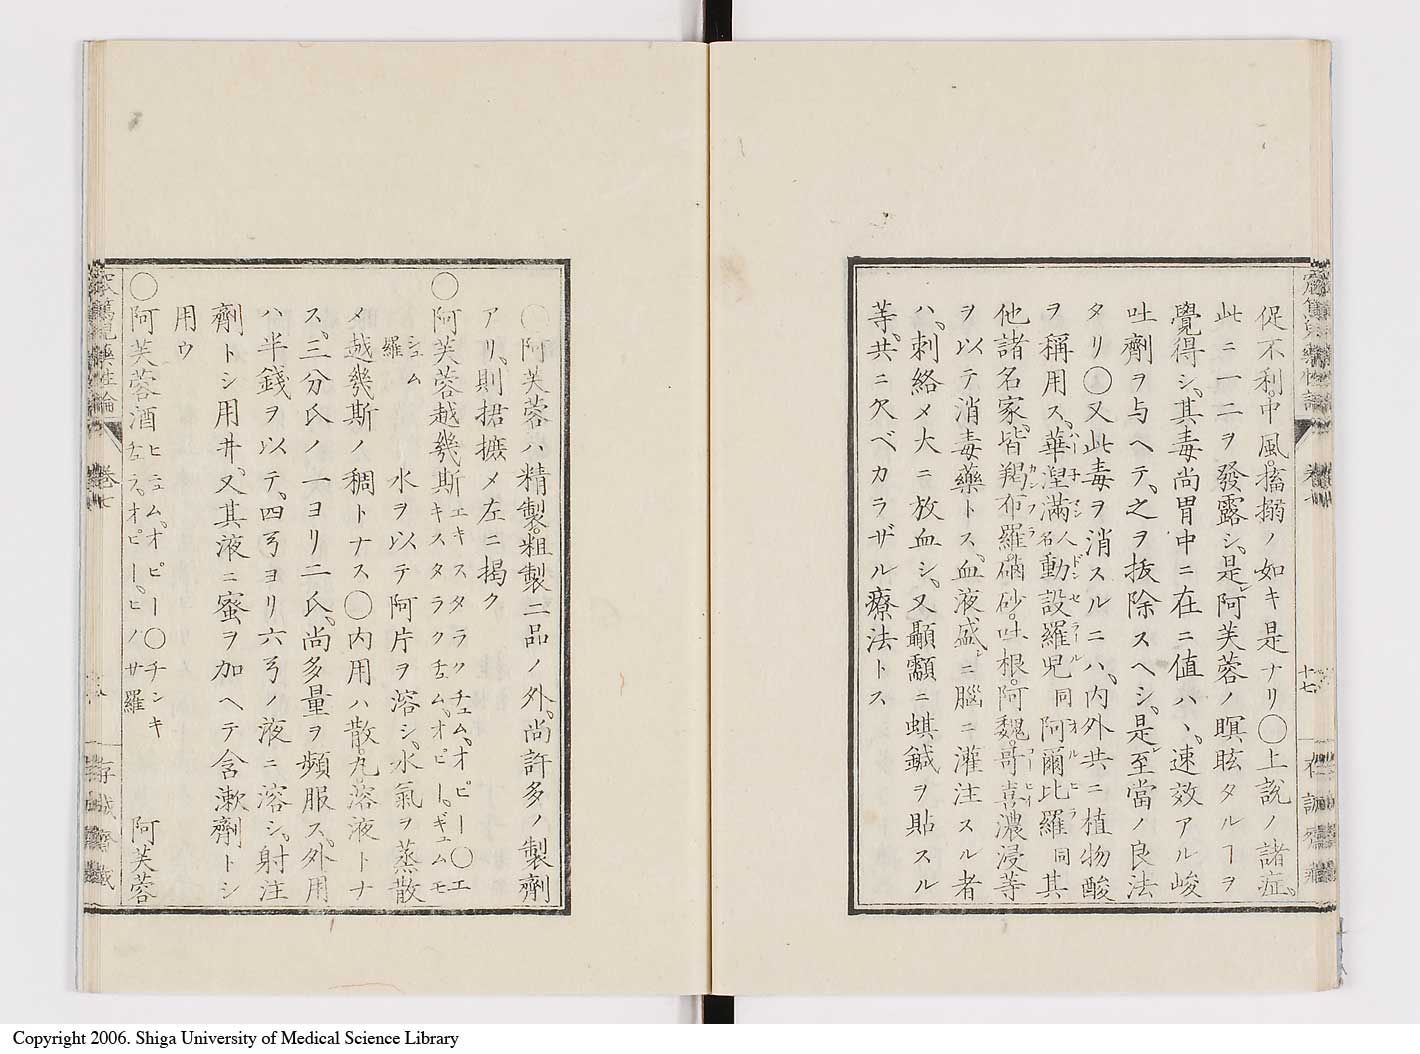 促不利。中風。搐搦ノ如キ是ナリ〇上說ノ諸症、
此ニ一二ヲ發露シ、是レ阿芙蓉ノ瞑眩タルヿヲ
覺得シ、其毒尚胃中ニ在ニ値ハヽ、速效アル峻
吐劑ヲ与ヘテ、之ヲ抜除スヘシ、是レ至當ノ良法
タリ〇又此毒ヲ消スルニハ、内外共ニ植物酸
ヲ稱用ス、華涅滿人名動設羅兒同阿爾比羅同其
他諸名家、皆羯布羅。硇砂。吐根。阿魏。哥喜濃浸等
ヲ以テ消毒藥トス、血液盛ニ腦ニ灌注スル者
ハ、刺絡メ大ニ放血シ、又顳顬ニ蜞鍼ヲ貼スル
等、共ニ欠ベカラザル療法トス
十七
〇阿芙蓉ハ精製。粗製二品ノ外、尚許多ノ製劑
アリ、則捃摭メ左ニ揭ク
〇阿芙蓉越幾斯エキスタラクチュム、オピー〇エキスタラクチュム、オピー。ギュムモシュム羅
水ヲ以テ阿片ヲ溶シ、水氣ヲ蒸散
メ越幾斯ノ稠トナス〇内用ハ散。丸。溶液トナ
ス、三分氏ノ一ヨリ二氏、尚多量ヲ頻服ス、外用
ハ半錢ヲ以テ、四弓ヨリ六弓ノ液ニ溶シ、射注
劑トシ用井、又其液ニ蜜ヲ加ヘテ含漱劑トシ
用ウ
〇阿芙蓉酒ヒニュム、オピー〇チンキチュラ、オピー、ヒノサ羅 阿芙蓉
窊篤兒藥性論
卷七
存誠齋藏
Copyright 2006. Shiga University of Medical Science Library